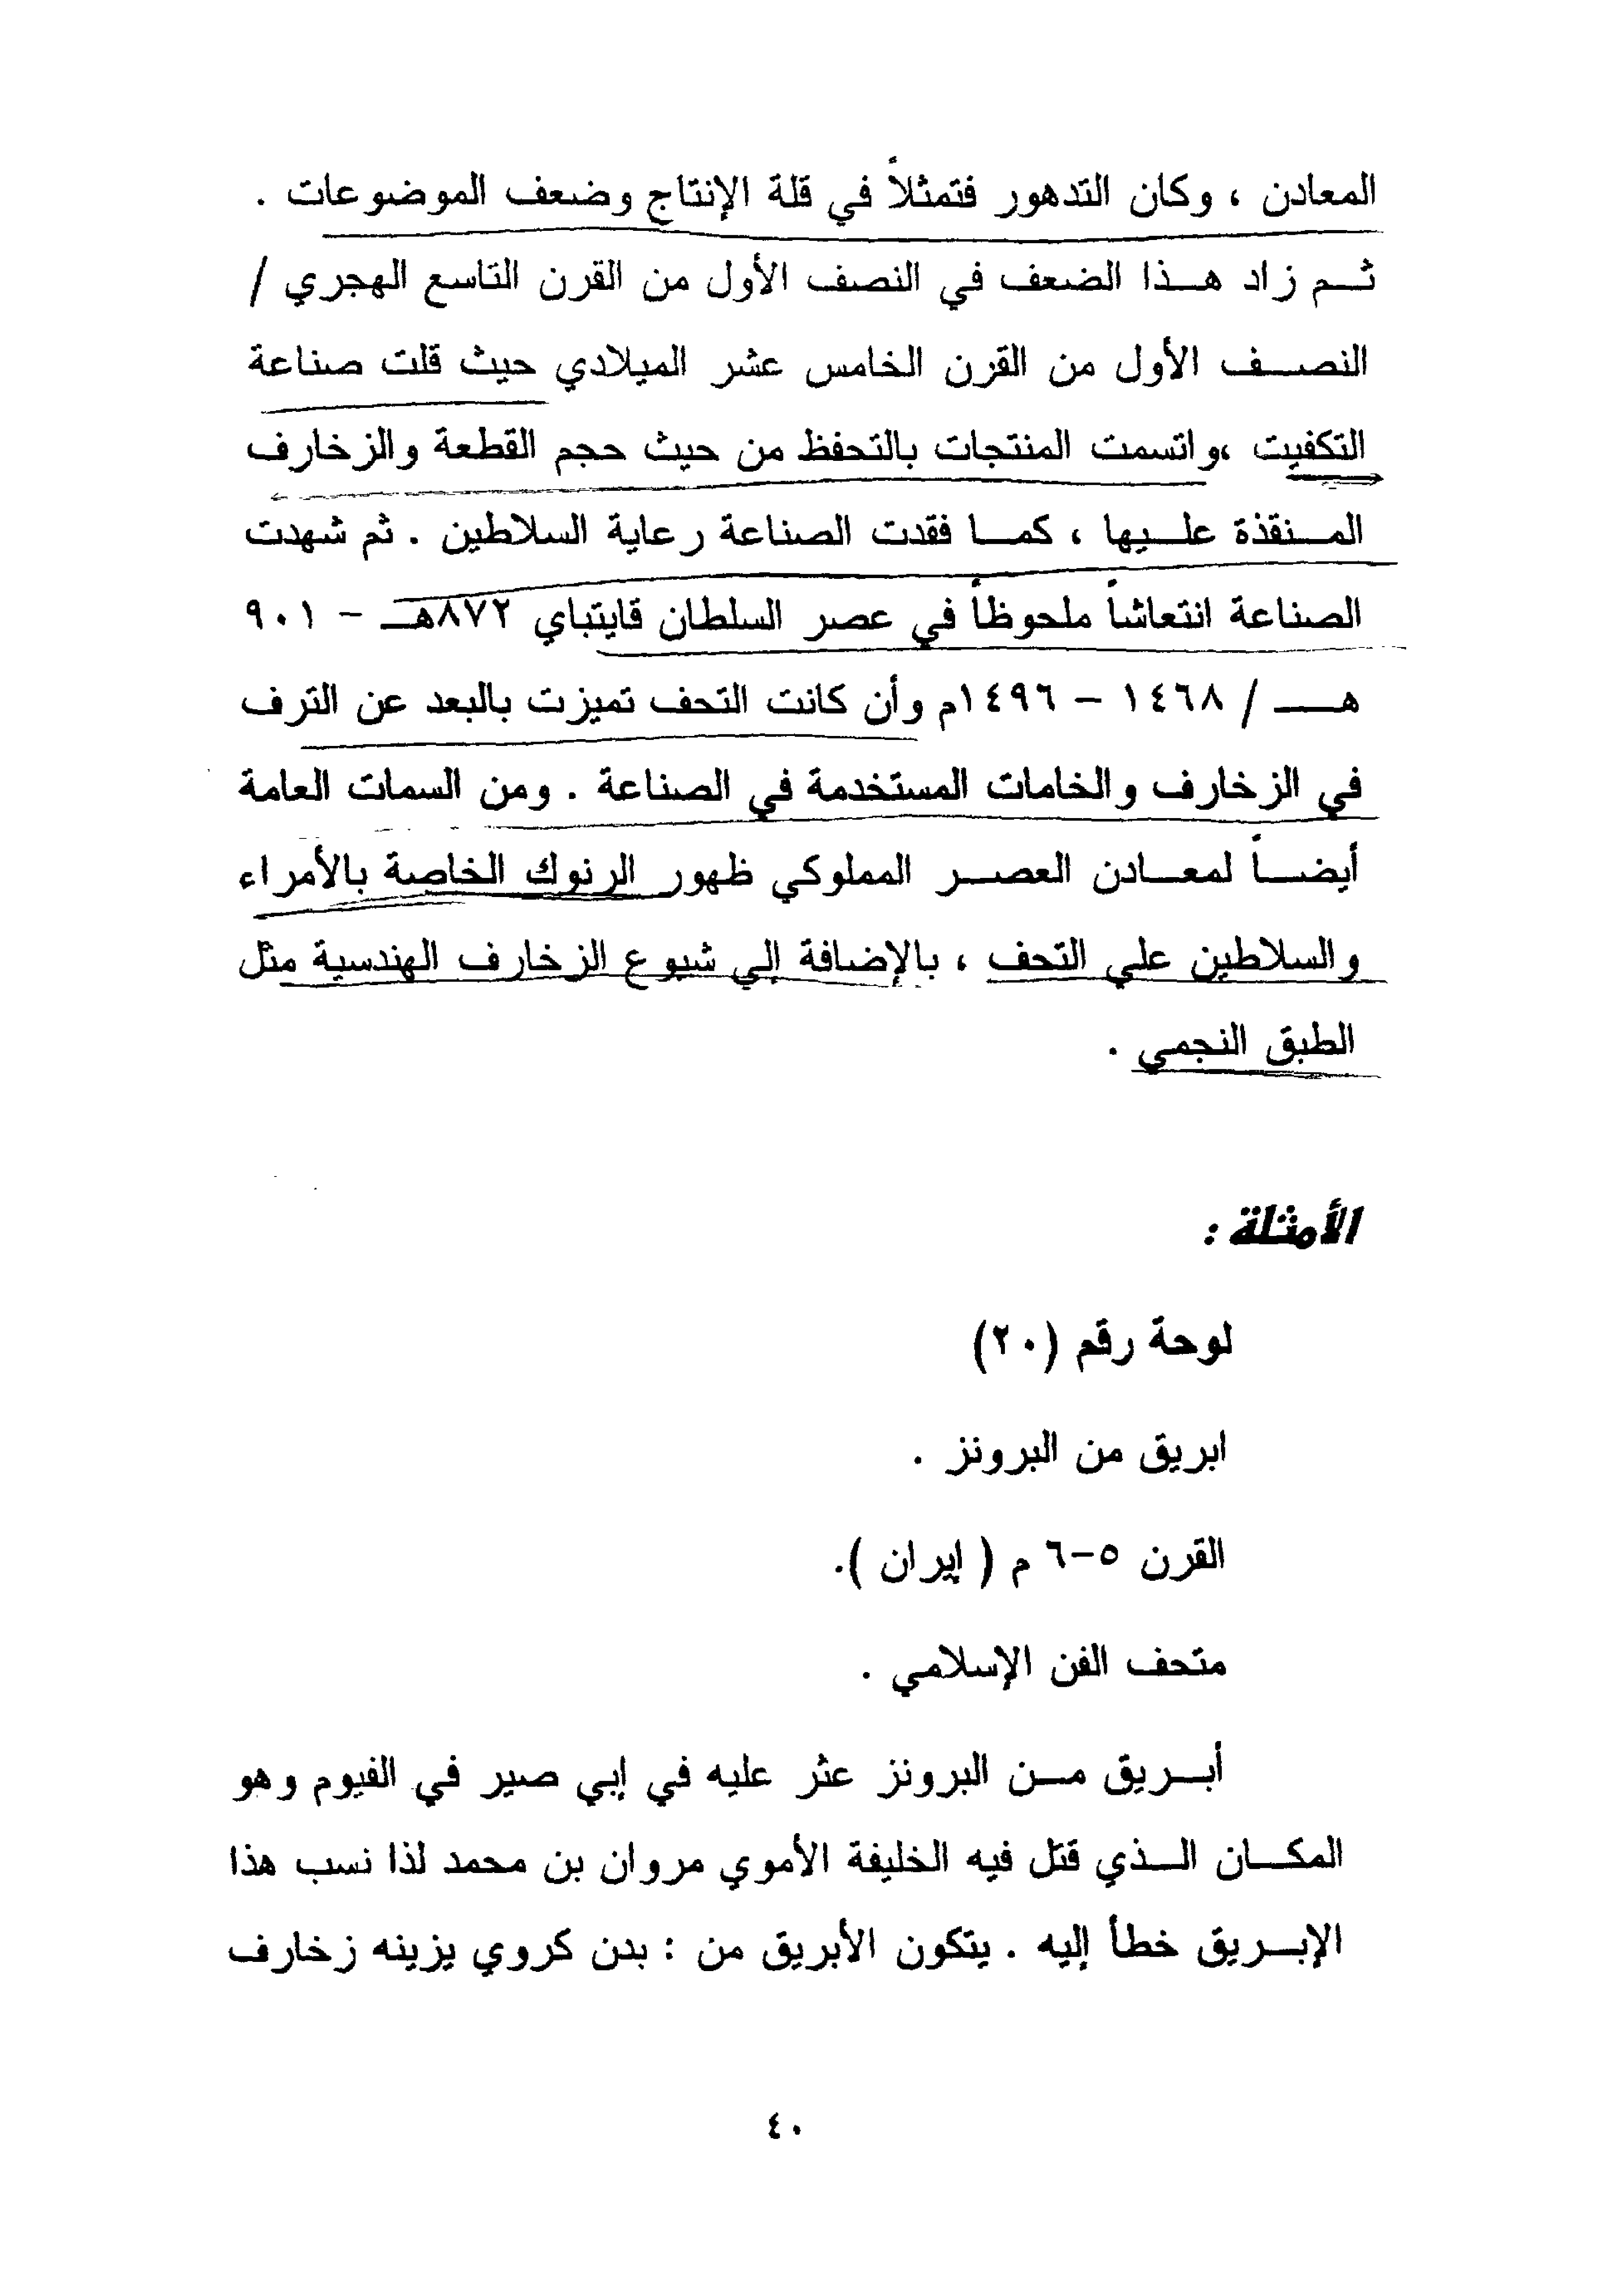 المعادن ، وكان التدهور فتمثلاً في قلة الإنتاج وضعف الموضوعات .
ثم زاد هذا الضعف في النصف الأول من القرن التاسع الهجري /
النصف الأول من القرن الخامس عشر الميلادي حيث قلت صناعة
التكفيت ،واتسمت المنتجات بالتحفظ من حيث حجم القطعة والزخارف
المنقذة عليها ، كما فقدت الصناعة رعاية السلاطين . ثم شهدت
الصناعة انتعاشاً ملحوظاً في عصر السلطان قايتباي ٨٧٢هـ – ٩٠١
هـ / ١٤٦٨ – ١٤٩٦م وأن كانت التحف تميزت بالبعد عن الترف
في الزخارف والخامات المستخدمة في الصناعة . ومن السمات العامة
أيضاً لمعادن العصر المملوكي ظهور الرنوك الخاصة بالأمراء
والسلاطين علي التحف ، بالإضافة إلي شيوع الزخارف الهندسية مثل
الطبق النجمي .
الأمثلة :
لوحة رقم (٢٠)
ابريق من البرونز .
القرن ٥–٦ م ( إيران ).
متحف الفن الإسلامي .
أبريق من البرونز عثر عليه في إبي صير في الفيوم وهو
المكان الذي قتل فيه الخليفة الأموي مروان بن محمد لذا نسب هذا
الإبريق خطأ إليه . يتكون الأبريق من : بدن كروي يزينه زخارف
٤٠